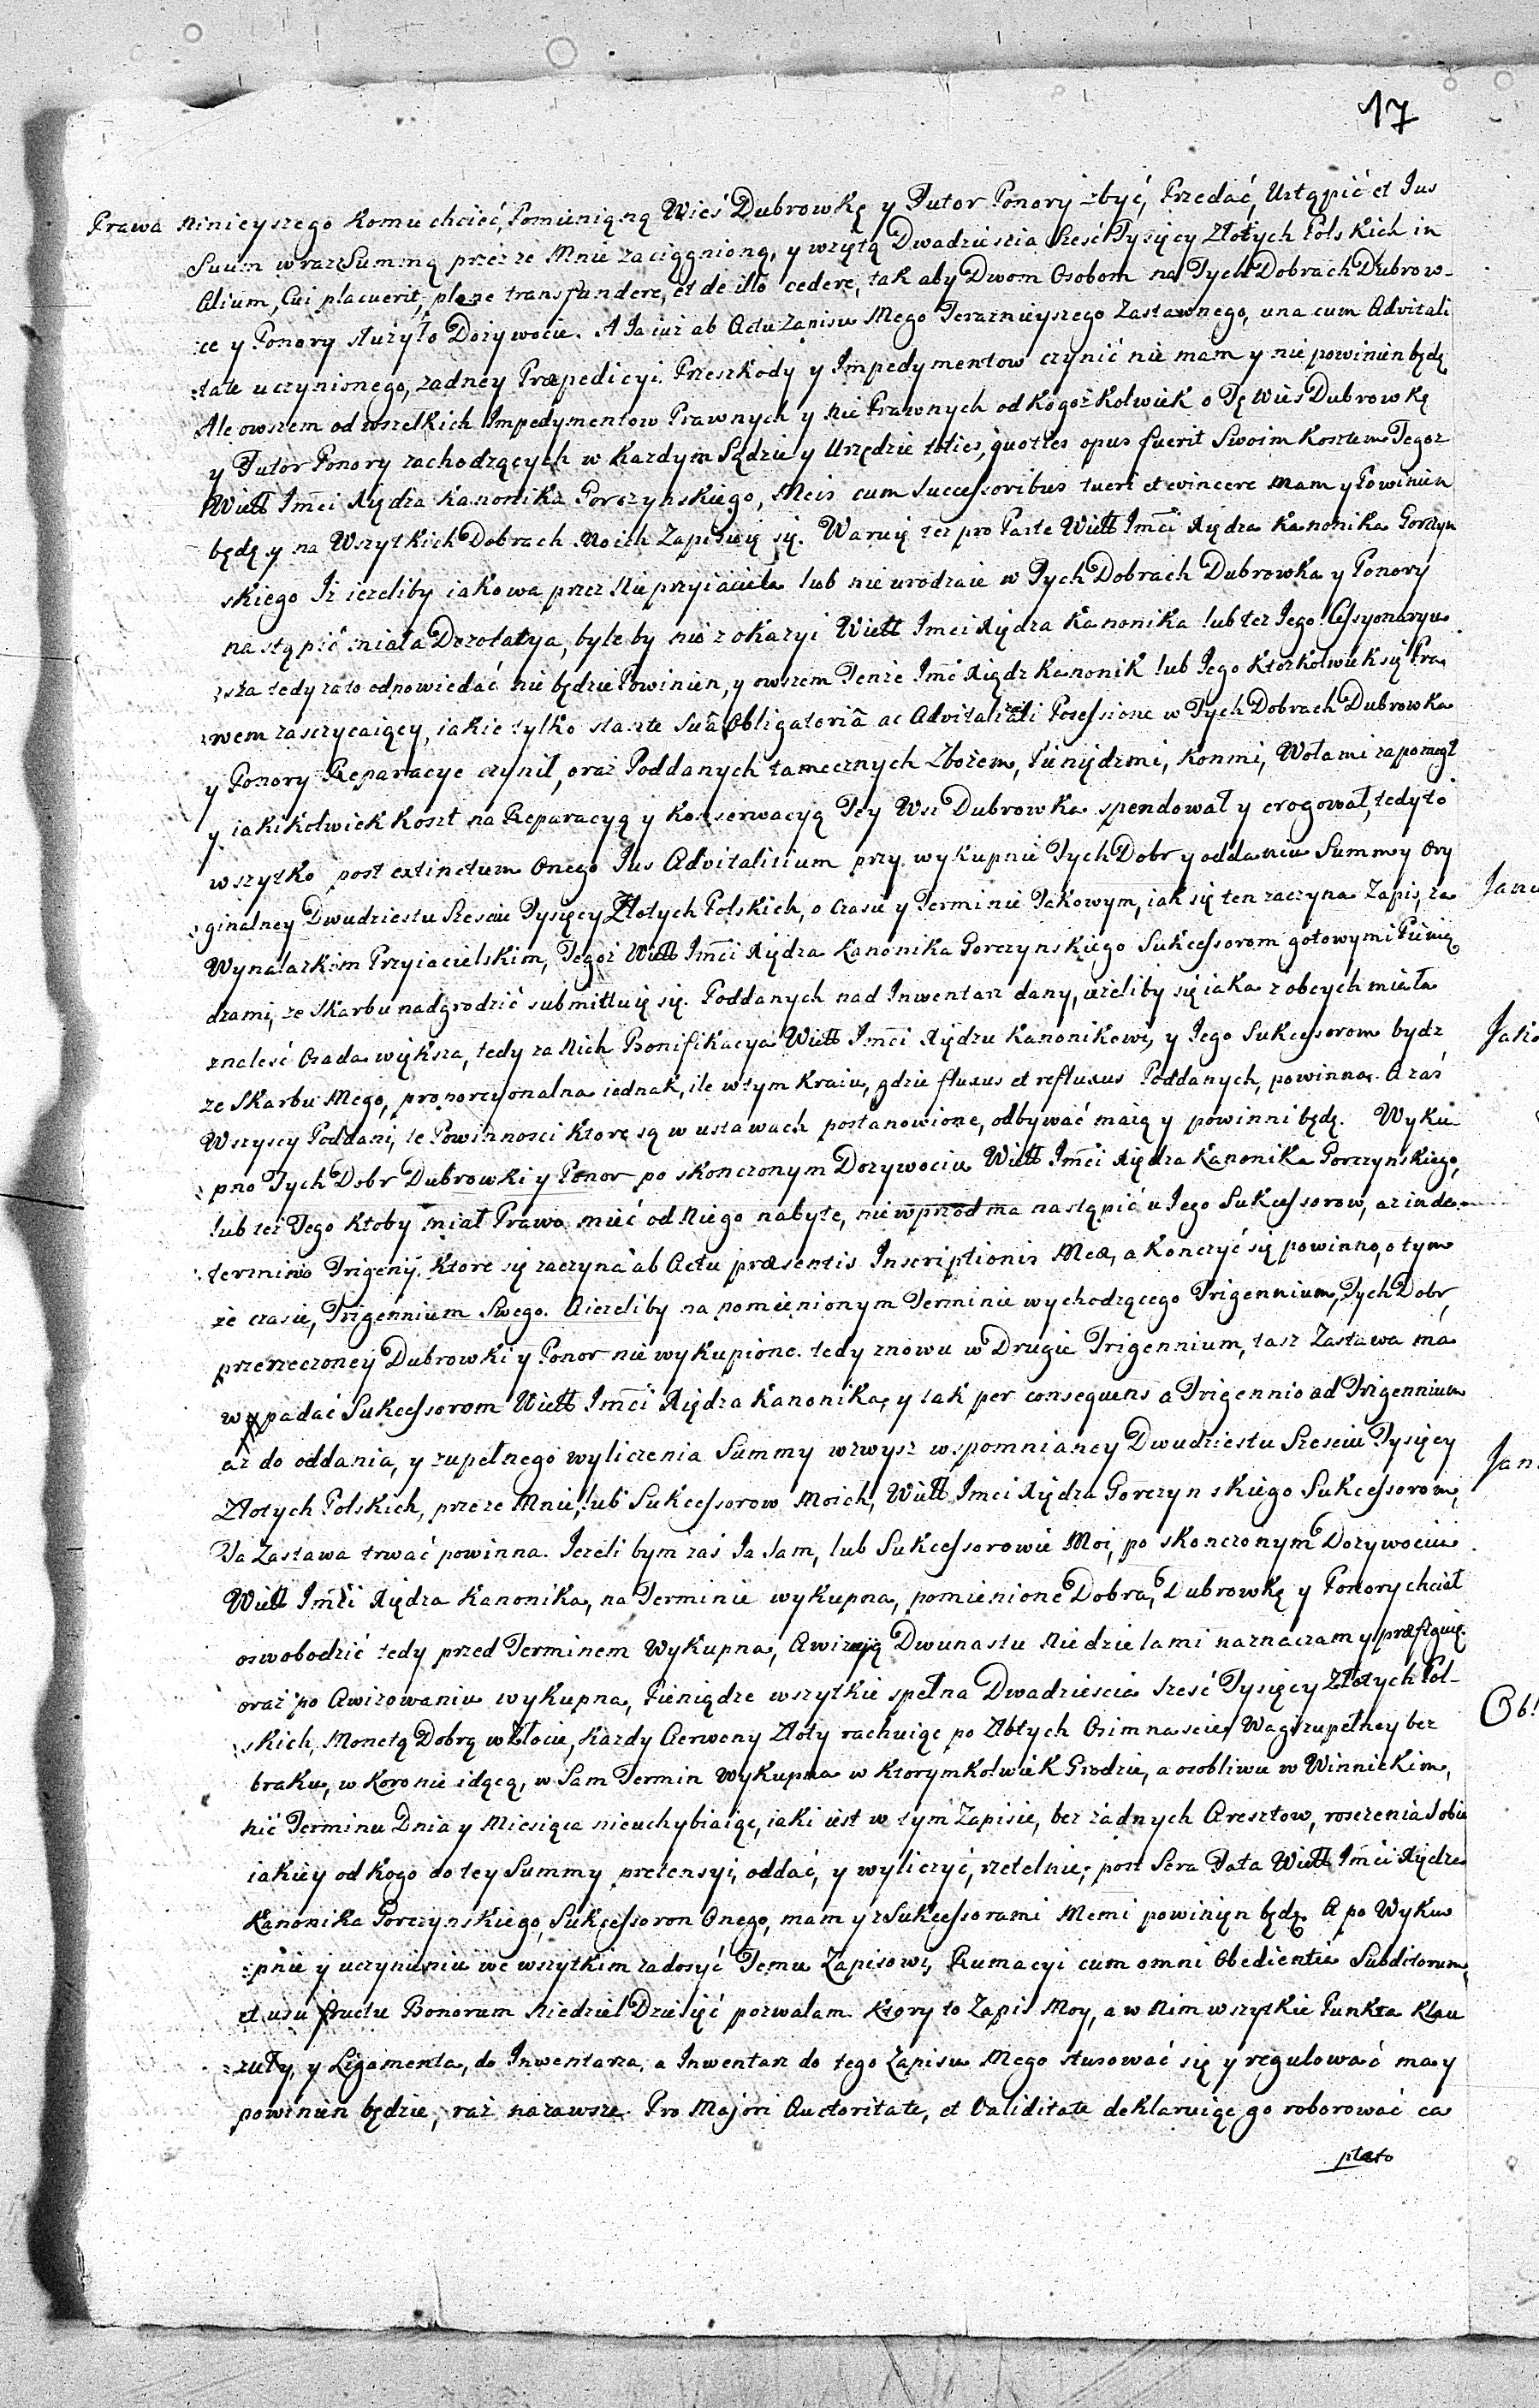 17
Prawa ninieyszego komu chcieć, Pomienioną Wieś Dubrowkę y Futor Ponory zbyć, Przedać, Ustąpić et Jus
Suum wraz Summą przeze Mnie zaciągnioną, y wziętą Dwadziescia Szesć Tysięcy Złotych Polskich in
Alium, Cui placuerit, plene transfundere, et de illo cedere, tak aby Dwom Osobom na Tych Dobrach Dubrow-
:ce y Ponory służyło Dożywocie. A Ja iuż ab Actu Zapisu Mego Teraznieyszego Zastawnego, una cum Advitali
:tate uczynionego, zadney Præpedicyi Przeszkody y Impedymentow czynić nie mam y nie powinien będę
Ale owszem od wszelkich Impedymentow Prawnych y nie Prawnych od kogoż kolwiek o Tę Wieś Dubrowkę
y Futor Ponory zachodzących w Kazdym Sądzie y Urzędzie toties, quoties opus fuerit Swoim Kosztem Tegoz
Wielł Imci Xiędza Kanonika Gorczynskiego, Meis cum Successoribus tueri et evincere mam y Powinien
będę y na Wszytkich Dobrach Moich Zapisuię się. Waruię tez pro Parte Wielł Imci Xiędza Kanonika Gorczyn
skiego Iż iezeliby iakowa przez Nieprzyiaciela lub nieurodzaie w Tych Dobrach Dubrowka y Ponory
nastąpić miała Dezolatya, byle by nie z okazyi Wielł Imci Xiędza Kanonika lub tez Jego Cessyonaryu
:sza tedy za to odpowiedać nie będzie Powinien, y owszem Tenże Imc Xiądz Kanonik lub Jego Ktożkolwiek się Pra
:wem zasczycaiący, iakie tylko stante Suâ Obligatoriâ ac Advitalitati Possessione w Tych Dobrach Dubrowka
y Ponory Reparacye czynił, oraz Poddanych tamecznych Zbożem, Pieniędzmi, Konmi, Wołami zapomogł
y iakikolwiek Koszt na Reparacyą y Konserwacyą Tey Wsi Dubrowka spendował y erogował, tedy to
wszytko post extinctum Onego Jus Advitalitium przy wykupnie Tych Dobr y oddaniu Summy Ory
:ginalney Dwudziestu Szesciu Tysięcy Złotych Polskich, o Czasie y Terminie Takowym, iak się ten zaczyna Zapis, za
Wynalazkiem Przyiacielskim, Tegoż Wielł Imci Xiędza Kanonika Gorczynskiego Sukcessorom gotowymi Pienię
dzami, ze Skarbu nadgrodzić submittuię się. Poddanych nad Inwentarz dany, ieżeliby się iaka z obcych miała
znaleść Osada większa, tedy za Nich Bonifikacya Wielł Imci Xiędzu Kanonikowi, y Jego Sukcessorom bydz
ze Skarbu Mego, proporcyonalna iednak, ile w tym Kraiu, gdzie fluxus et refluxus Poddanych, powinna. A zaś
Wszyscy Poddani, te Powinnosci ktore są w ustawach postanowione, odbywać maią y powinni będą. Wyku
:pno Tych Dobr Dubrowki y Ponor po skonczonym Dozywociu Wielł Imci Xiędza Kanonika Gorczynskiego,
lub tez Tego Ktoby miał Prawo mieć od Niego nabyte, nie wprzod ma nastąpić u Jego Sukcessorow, az in de
:termino Trigenij. Ktore się zaczyna ab Actu præsentis Inscriptionis Meæ, a Konczyć się powinno, o tym
że czasie, Trigennium Swego. A iezeliby na pomienionym Terminie wychodzącego Trigennium, Tych Dobr,
przerzeczoney Dubrowki y Ponor nie wykupione. tedy znowu w Drugie Trigennium, tasz Zastawa ma
wypadać Sukcessorom Wielł Imci Xiędza Kanonika, y tak per consequens a Trigennio ad Trigennium
aż do oddania, y zupełnego wyliczenia Summy wzwysz wspomnianey Dwudziestu Szesciu Tysięcy
Złotych Polskich, przeze Mnie, lub Sukcessorow Moich, Wielł Imci Xiędza Gorczynskiego Sukcessorom,
Ta Zastawa trwać powinna. Jezeli bym zaś Ja Sam, lub Sukcessorowie Moi, po skonczonym Dozywociu
Wielł Imci Xiędza Kanonika, na Terminie wykupna, pomienione Dobra, Dubrowkę y Ponory chciał
oswobodzić tedy przed Terminem Wykupna, Awizyą Dwunastu Niedzielami naznaczam y præfiguię.
oraz po Awizowaniu wykupna, Pieniądze wszytkie spełna Dwadziescia Szesć Tysięcy Złotych Pol-
:skich, Monetą Dobrą w Złocie, Kazdy Czerwony Złoty rachuiąc po Złotych Osimnascie, Wagi zupełney bez
braku, w Koronie idącą, w Sam Termin Wykupna w Ktorymkolwiek Grodzie, a osobliwie w Winnickim,
nic Terminu Dnia y Miesiąca nieuchybiaiąc, iaki iest w tym Zapisie, bez żadnych Aresztow, roszczenia sobie
iakiey od kogo do tey Summy pretensyi, oddać, y wyliczyć, rzetelnie, post Sera Fata Wielł Imci Xiędza
Kanonika Gorczynskiego, Sukcessorom Onego, mam y z Sukcessorami Memi powinien będę. A po Wyku
:pnie y uczynieniu we wszytkim zadosyć Temu Zapisowi, Rumacyi cum omni Obedientia Subditorum,
et usu fructu Bonorum Niedziel Dziesięć pozwalam. Ktory to Zapis Moy, a w Nim wszytkie Punkta Klau
:zuły, y Ligamenta, do Inwentarza, a Inwentarz do tego Zapisu Mego stusować się y regulować ma y
powinien będzie, raz nazawsze. Pro Majori Auctoritate, et Validitate deklaruiąc go roborować ca
ptato
Jako
Jan
Obl